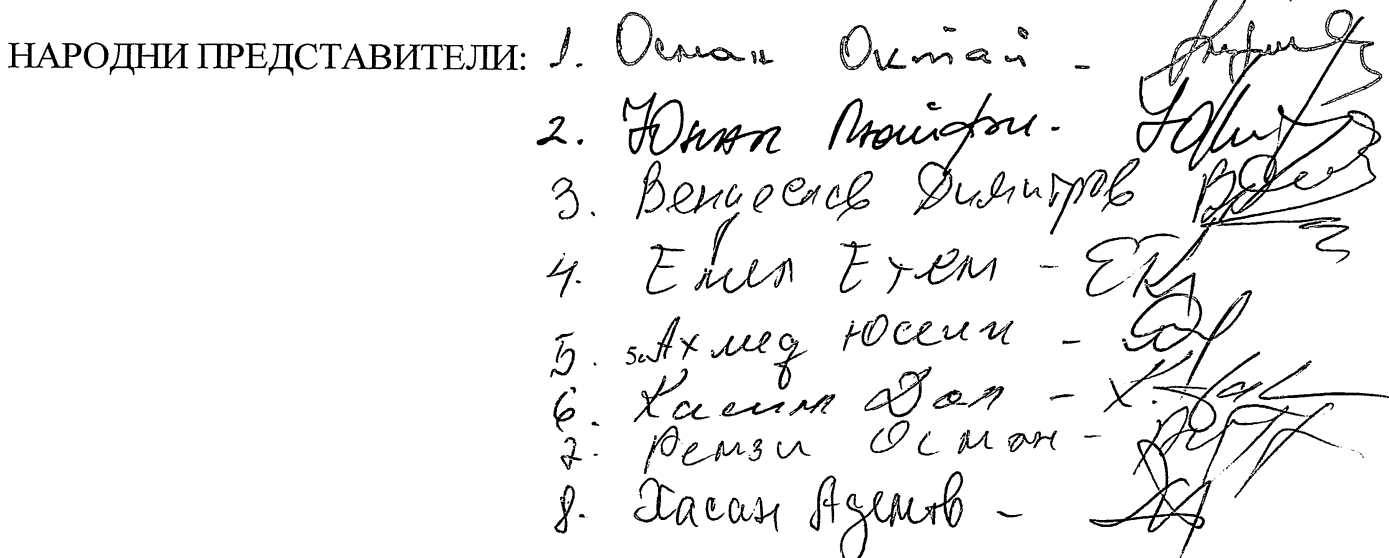 НАРОДНИ ПРЕДСТАВИТЕЛИ: 1. Осман Октай -
2. Юнал Лютфи.
3. Венцеслав Димитров
4. Емел Етем -
5. Ахмед Юсеин -
6. Касим Дал -
7. Ремзи Осман -
8. Хасан Адемов -